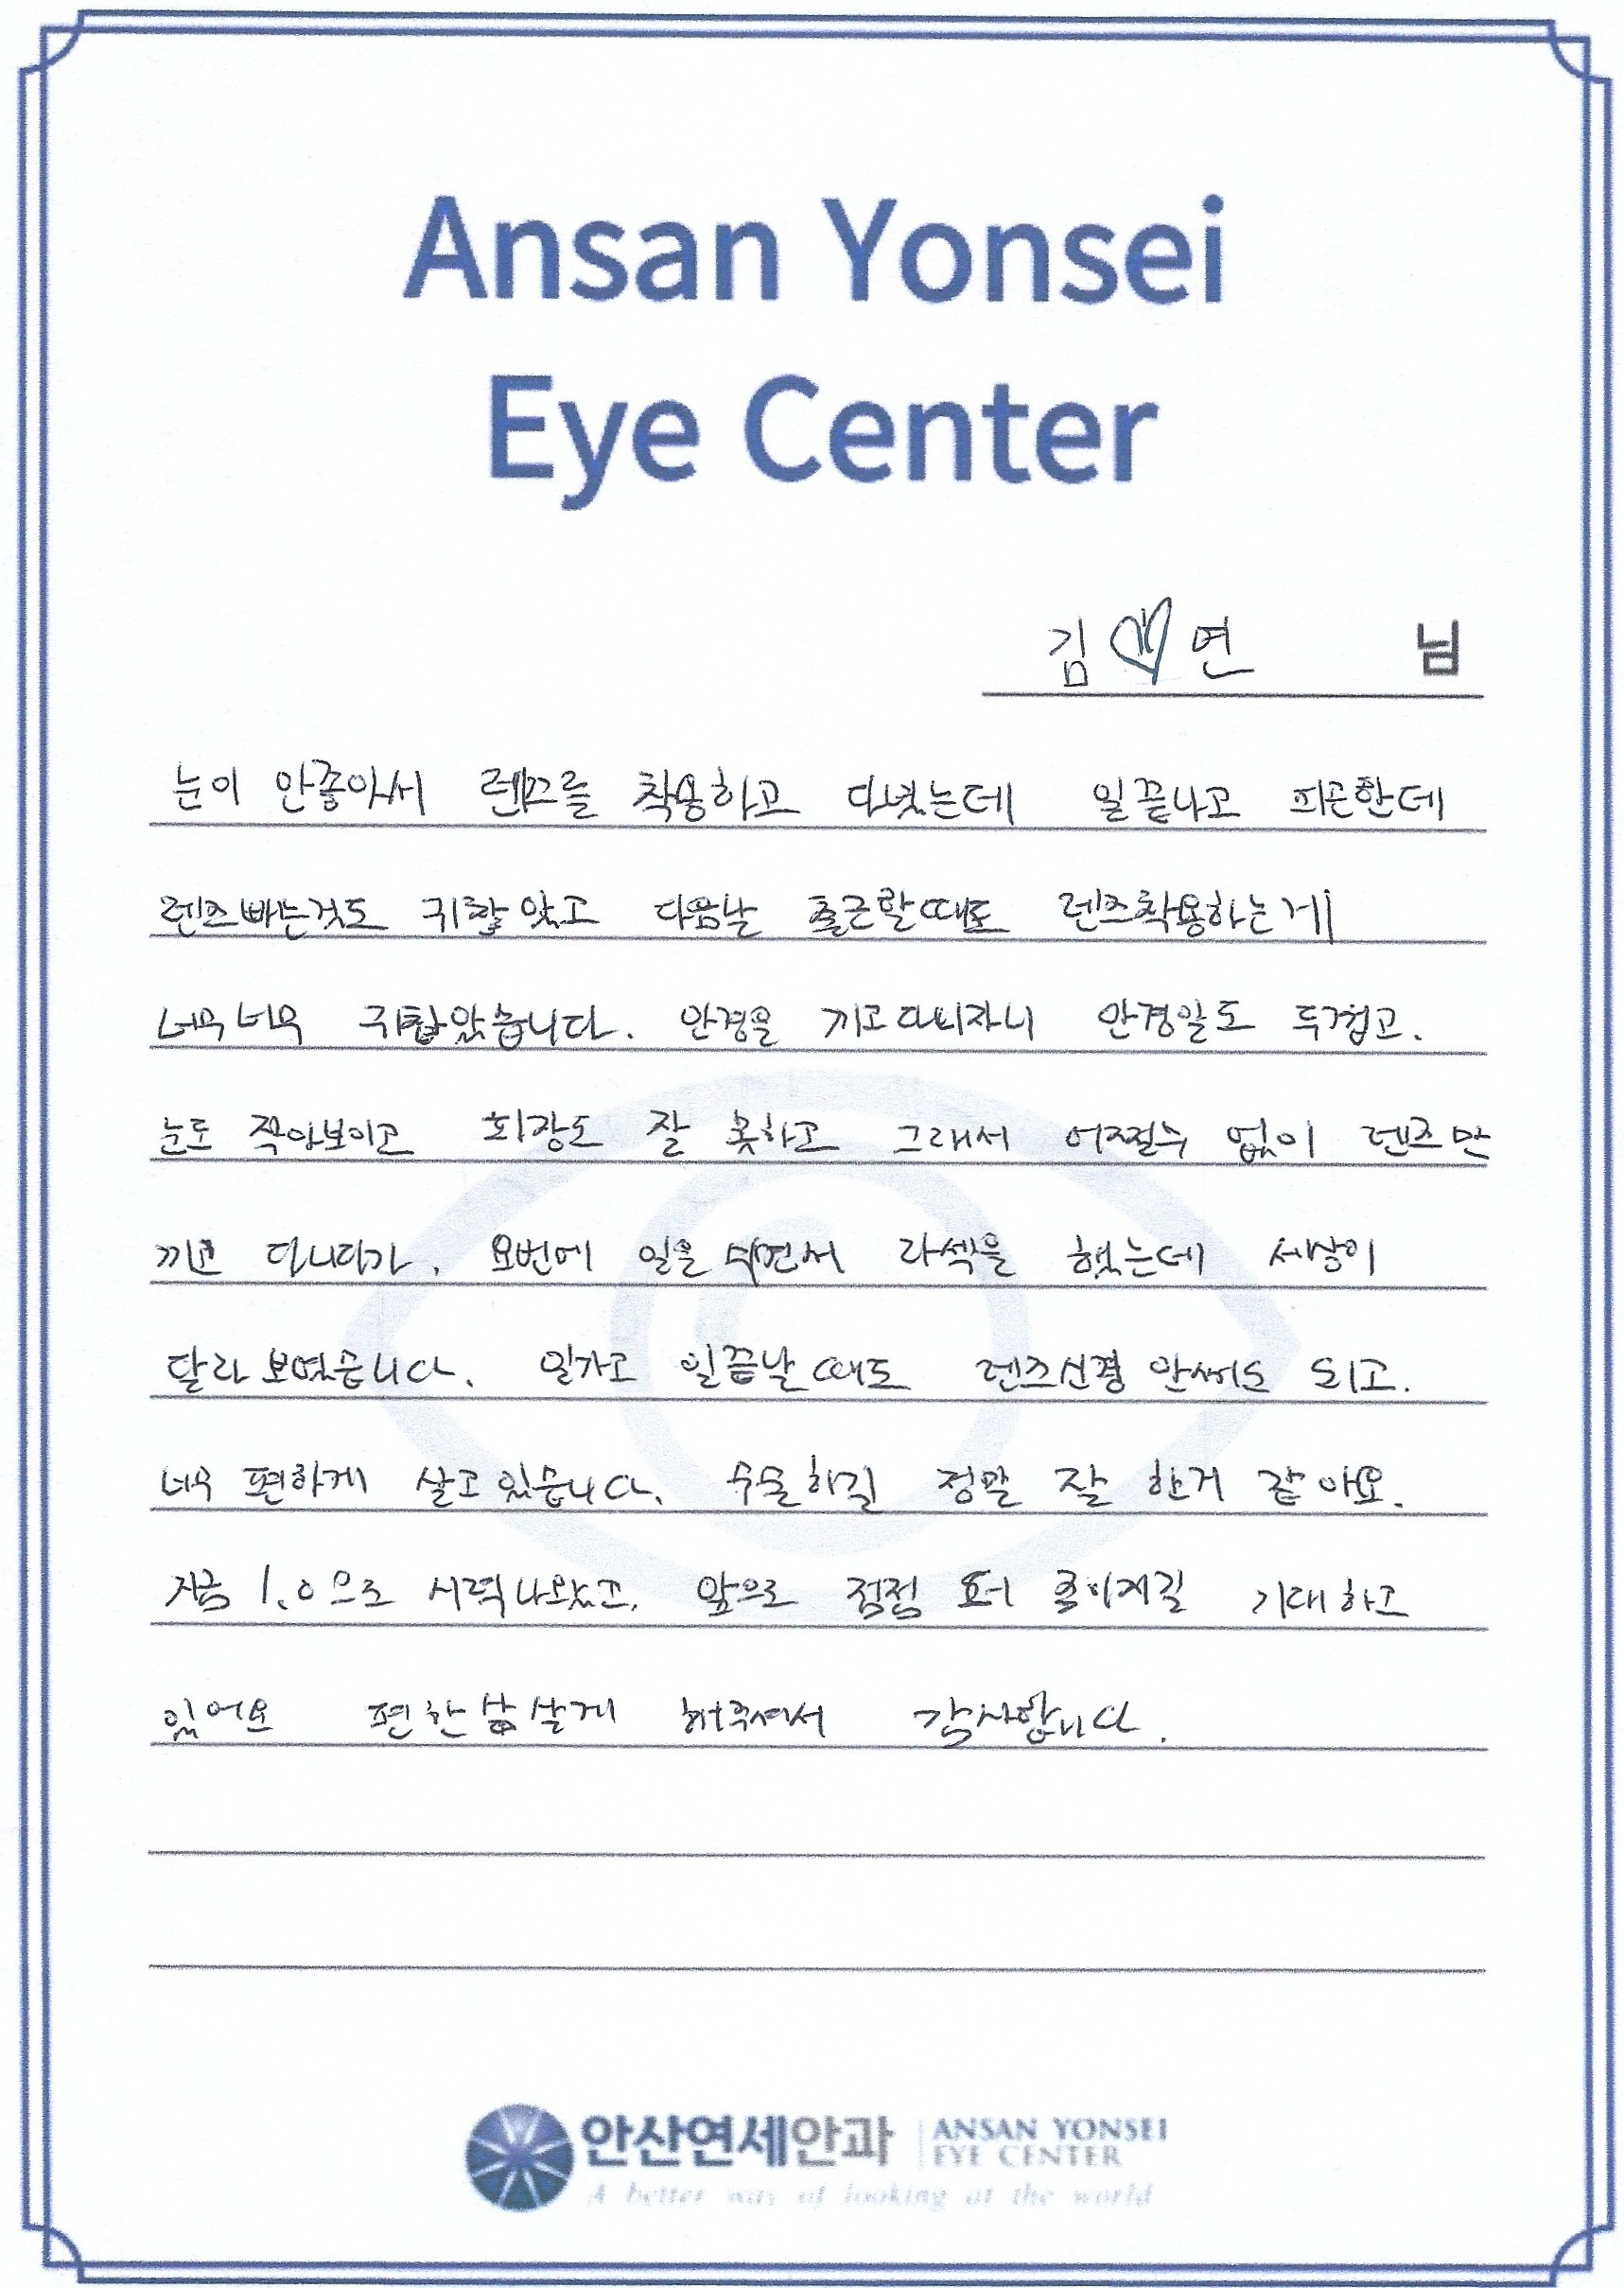 Ansan Yonsei
Eye Center
김♡연 님
눈이 안좋아서 렌즈를 착용하고 다녔는데 일끝나고 피곤한데
렌즈빼는것도 귀찮았고 다음날 출근할때도 렌즈착용하는게
너무너무 귀찮았습니다. 안경을 끼고다니자니 안경알도 두껍고.
눈도 작아보이고 화장도 잘 못하고 그래서 어쩔수 없이 렌즈만
끼고 다니다가. 요번에 일을 쉬면서 라섹을 했는데 세상이
달라보였습니다. 일가고 일끝날때도 렌즈신경 안써도 되고.
너무 편하게 살고있습니다. 수술하길 정말 잘 한거 같아요.
지금 1.0으로 시력나왔고. 앞으로 점점 더 기대하고
있어요 편한삶살게 해주셔서 감사합니다.
안산연세안과 ANSAN YONSEI
EYE CENTER
A better way of looking at the world